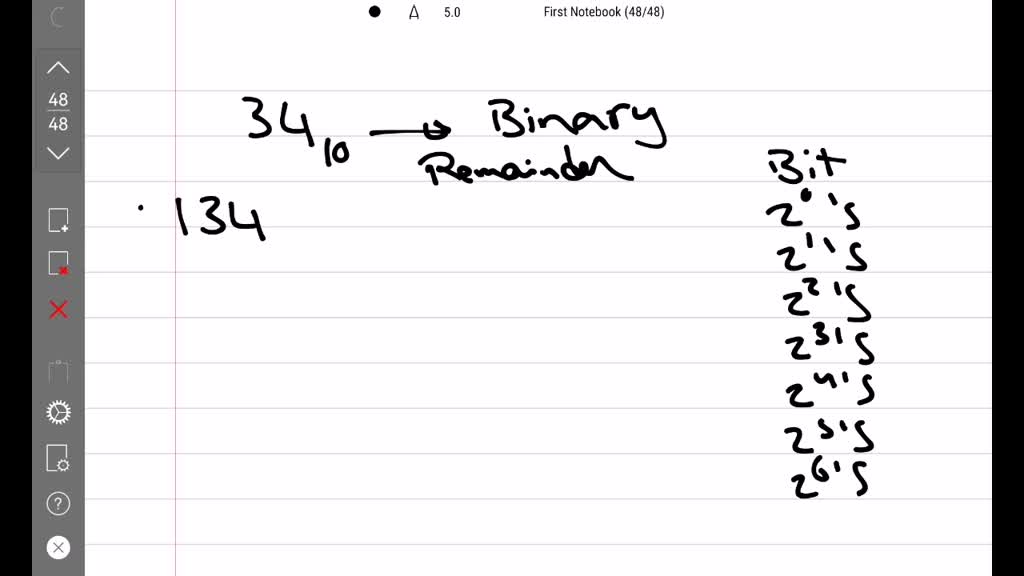 5.0 First Notebook (48/48)
48
48
34₁₀ → Binary
Remainder
Bit
134
2⁰'s
2¹'s
2²'s
2³'s
2⁴'s
2⁵'s
2⁶'s